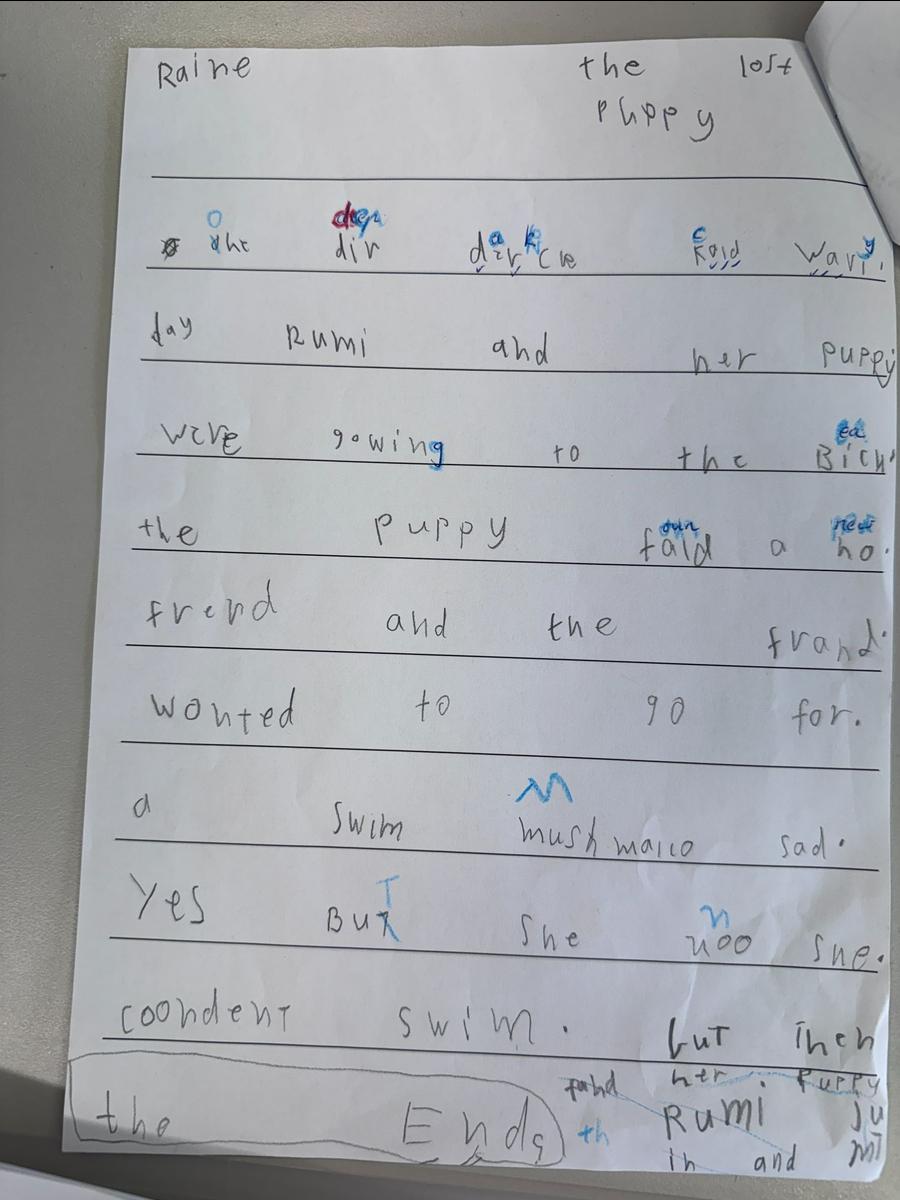 Raine the lost
puppy
O dep a k c y
the dir darcke Kold Wary.
day Rumi and her puppy
were gowing to the Bich
ea
the puppy fald a ho.
oun new
frend and the frand.
wonted to go for.
a swim mushmallo sad.
M
Yes BuT she noo she.
T n
coondent swim. but Then
the Ends
fahd her Puppy
th Rumi ju
in and mi